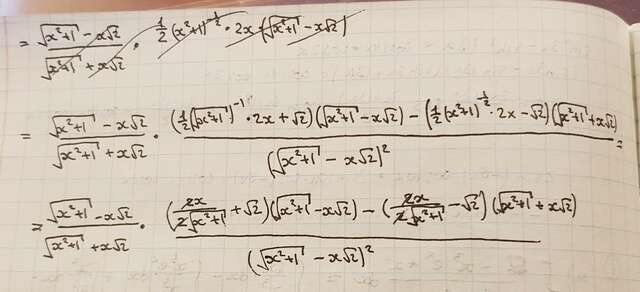 = (√(x²+1) - x√2)/(√(x²+1) + x√2) · 1/2 (x²+1)^(-1/2) · 2x (√(x²+1) - x√2)
= (√(x²+1) - x√2)/(√(x²+1) + x√2) · ((1/2 (√(x²+1))^(-1) · 2x + √2)(√(x²+1) - x√2) - (1/2 (x²+1)^(-1/2) · 2x - √2)(√(x²+1) + x√2))/((√(x²+1) - x√2)²) =
= (√(x²+1) - x√2)/(√(x²+1) + x√2) · ((2x/(2√(x²+1)) + √2)(√(x²+1) - x√2) - (2x/(2√(x²+1)) - √2)(√(x²+1) + x√2))/((√(x²+1) - x√2)²)